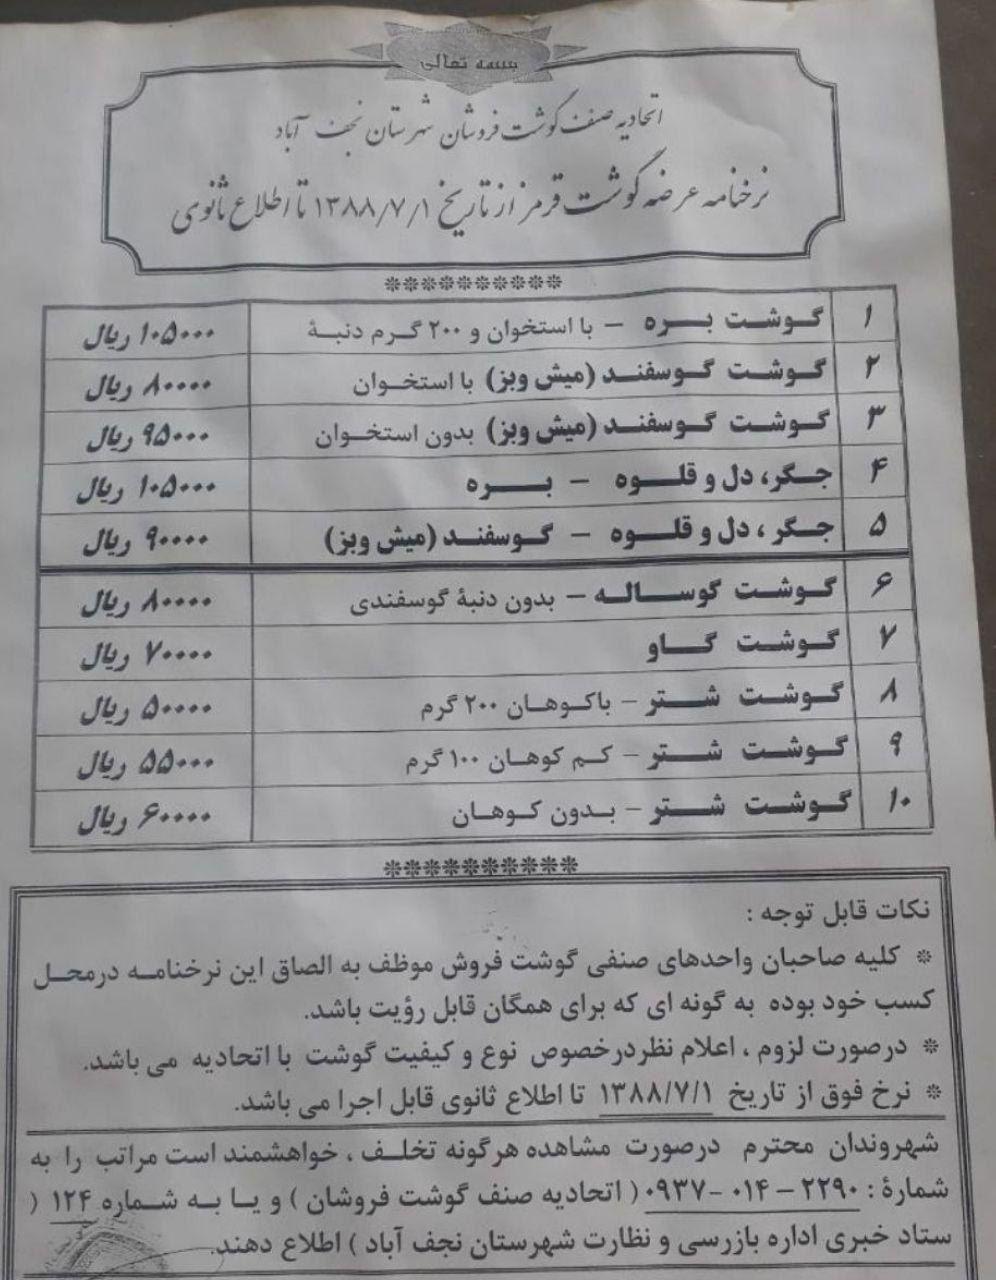 بسمه تعالی
اتحادیه صنف گوشت فروشان شهرستان نجف آباد
نرخنامه عرضه گوشت قرمز از تاریخ ۱۳۸۸/۷/۱ تا اطلاع ثانوی
**********
۱ گوشت بره – با استخوان و ۲۰۰ گرم دنبۀ ۱۰۵۰۰۰ ریال
۲ گوشت گوسفند (میش وبز) با استخوان ۸۰۰۰۰ ریال
۳ گوشت گوسفند (میش وبز) بدون استخوان ۹۵۰۰۰ ریال
۴ جگر، دل و قلوه – بره ۱۰۵۰۰۰ ریال
۵ جگر ، دل و قلوه – گوسفند (میش وبز) ۹۰۰۰۰ ریال
۶ گوشت گوساله – بدون دنبۀ گوسفندی ۸۰۰۰۰ ریال
۷ گوشت گاو ۷۰۰۰۰ ریال
۸ گوشت شتر – باکوهان ۲۰۰ گرم ۵۰۰۰۰ ریال
۹ گوشت شتر – کم کوهان ۱۰۰ گرم ۵۵۰۰۰ ریال
۱۰ گوشت شتر – بدون کوهان ۶۰۰۰۰ ریال
**********
نکات قابل توجه :
* کلیه صاحبان واحدهای صنفی گوشت فروش موظف به الصاق این نرخنامه درمحل
کسب خود بوده به گونه ای که برای همگان قابل رؤیت باشد.
* درصورت لزوم ، اعلام نظردرخصوص نوع و کیفیت گوشت با اتحادیه می باشد.
* نرخ فوق از تاریخ ۱۳۸۸/۷/۱ تا اطلاع ثانوی قابل اجرا می باشد.
شهروندان محترم درصورت مشاهده هرگونه تخلف ، خواهشمند است مراتب را به
شمارۀ : ۲۲۹۰ – ۰۱۴ -۰۹۳۷ ( اتحادیه صنف گوشت فروشان ) و یا به شماره ۱۲۴ (
ستاد خبری اداره بازرسی و نظارت شهرستان نجف آباد ) اطلاع دهند.